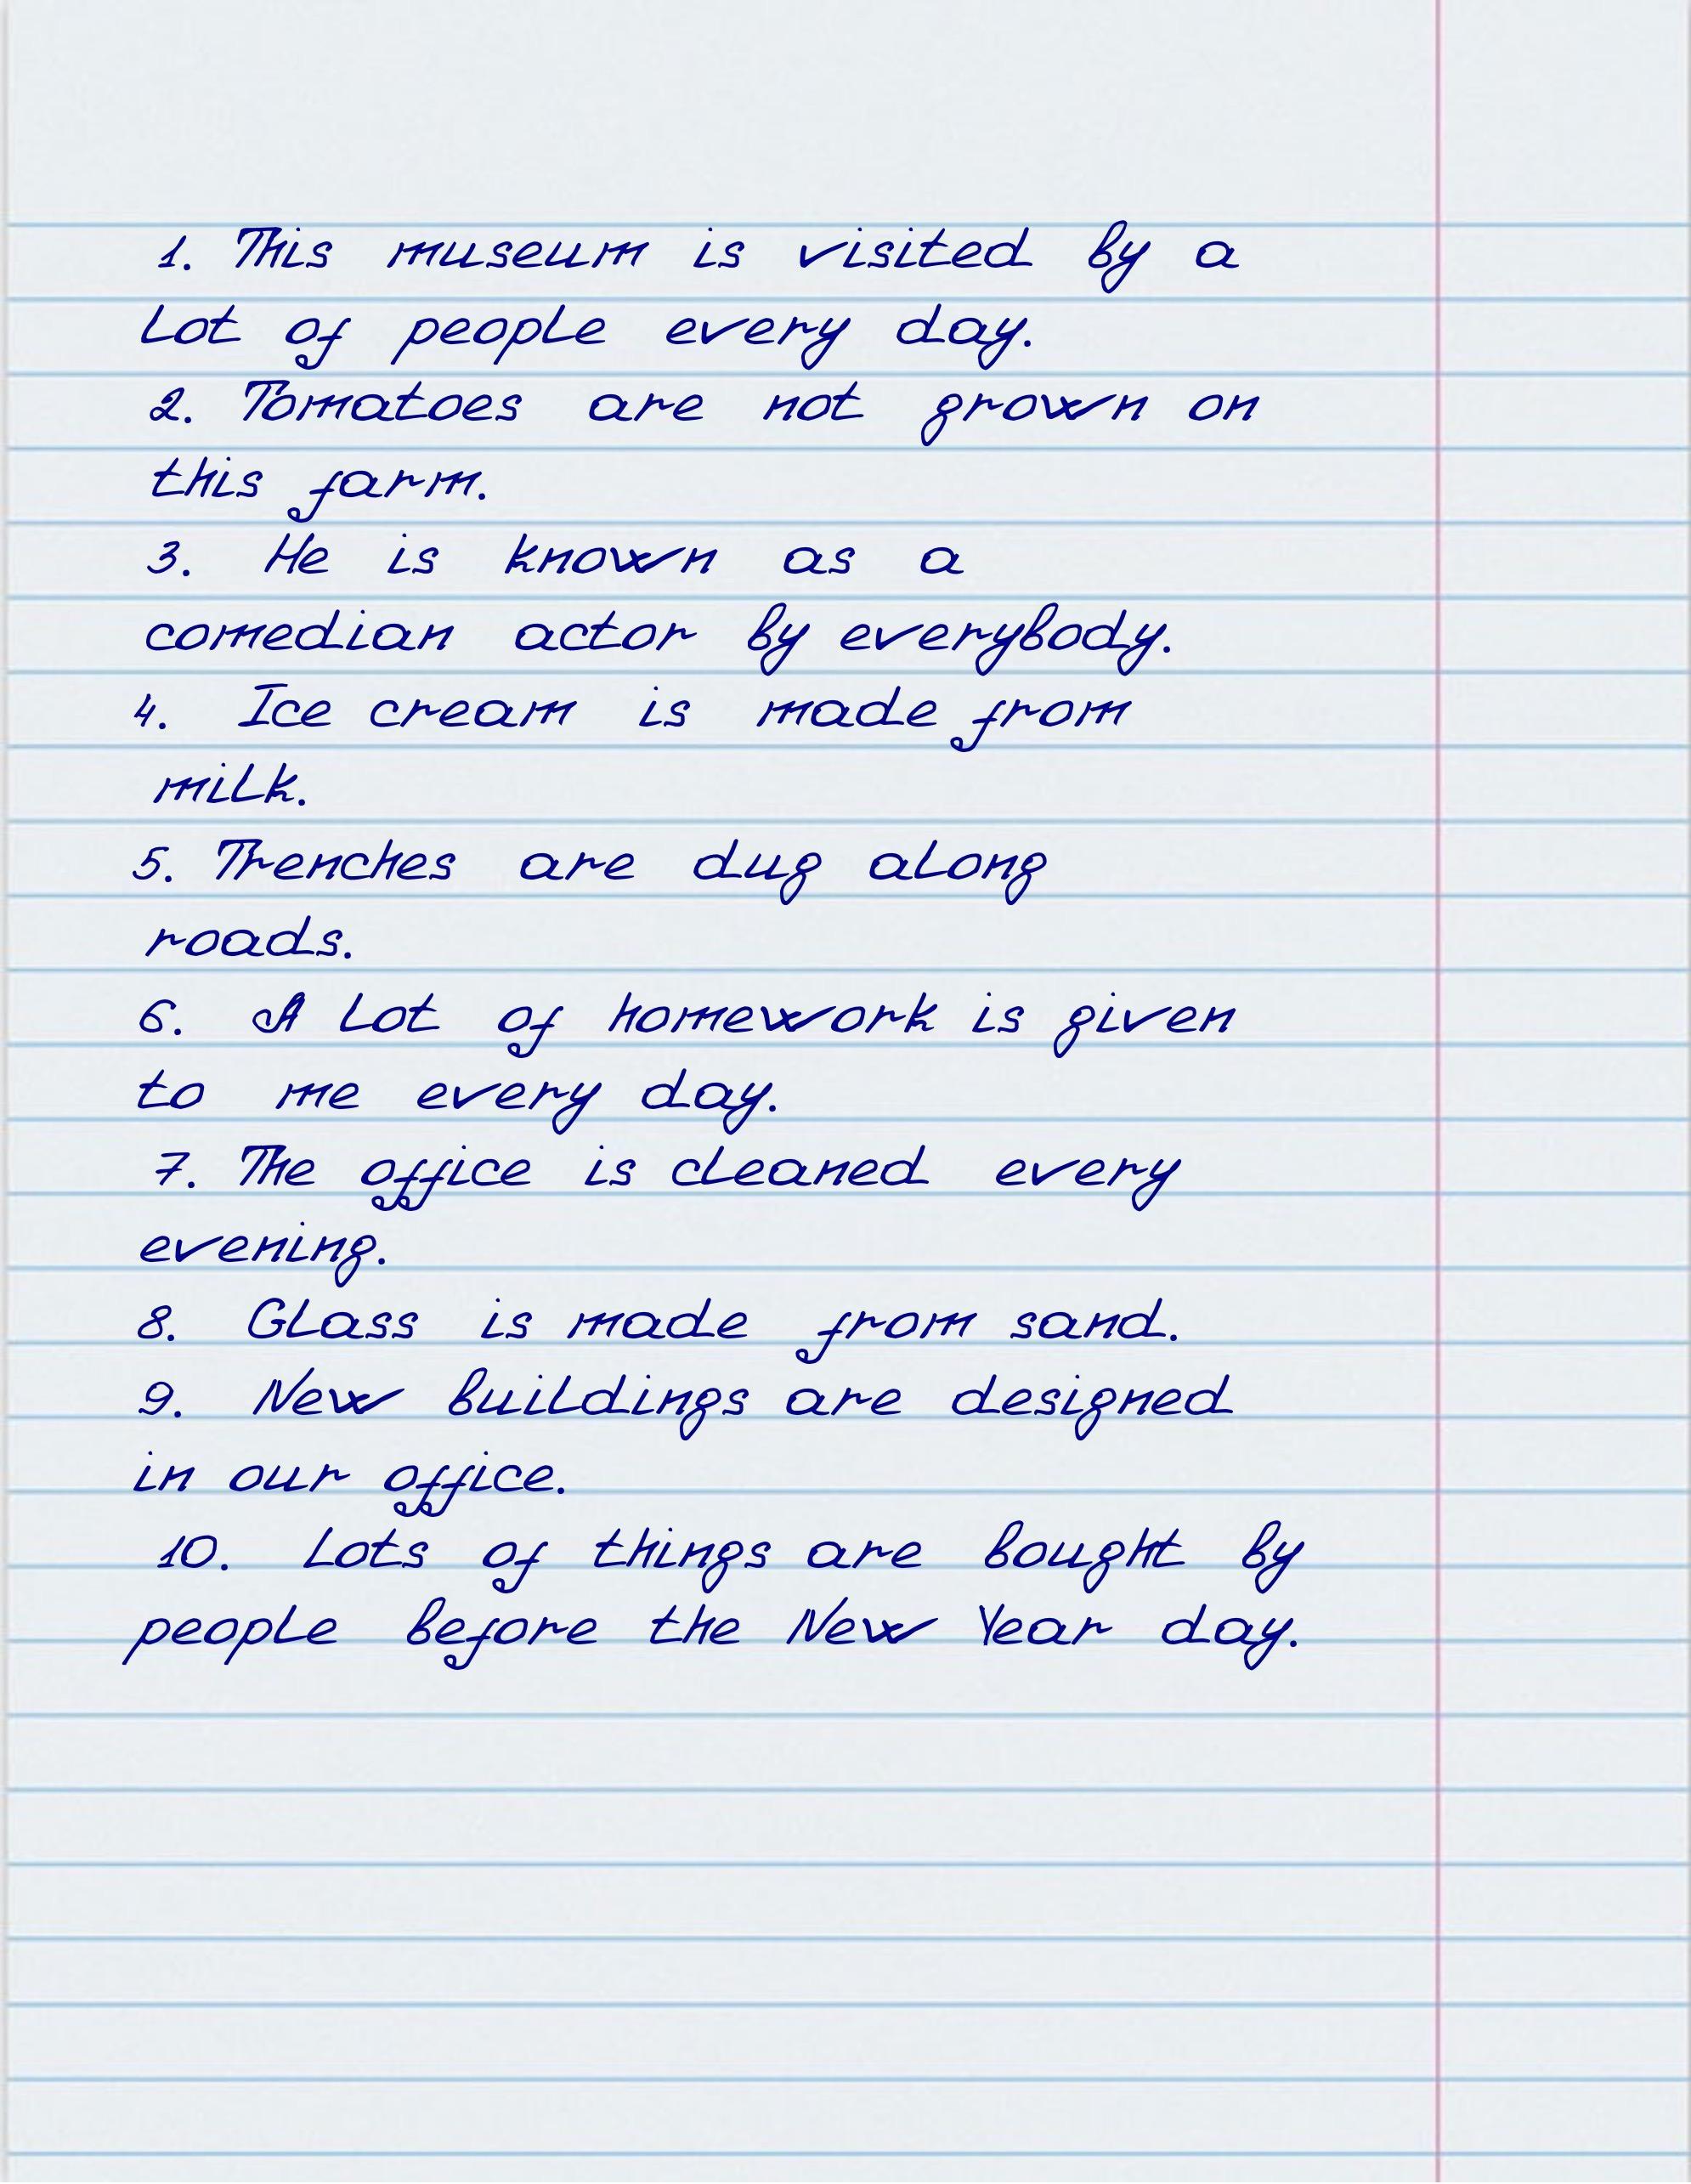 1. This museum is visited by a
lot of people every day.
2. Tomatoes are not grown on
this farm.
3. He is known as a
comedian actor by everybody.
4. Ice cream is made from
milk.
5. Trenches are dug along
roads.
6. A lot of homework is given
to me every day.
7. The office is cleaned every
evening.
8. Glass is made from sand.
9. New buildings are designed
in our office.
10. Lots of things are bought by
people before the New Year day.